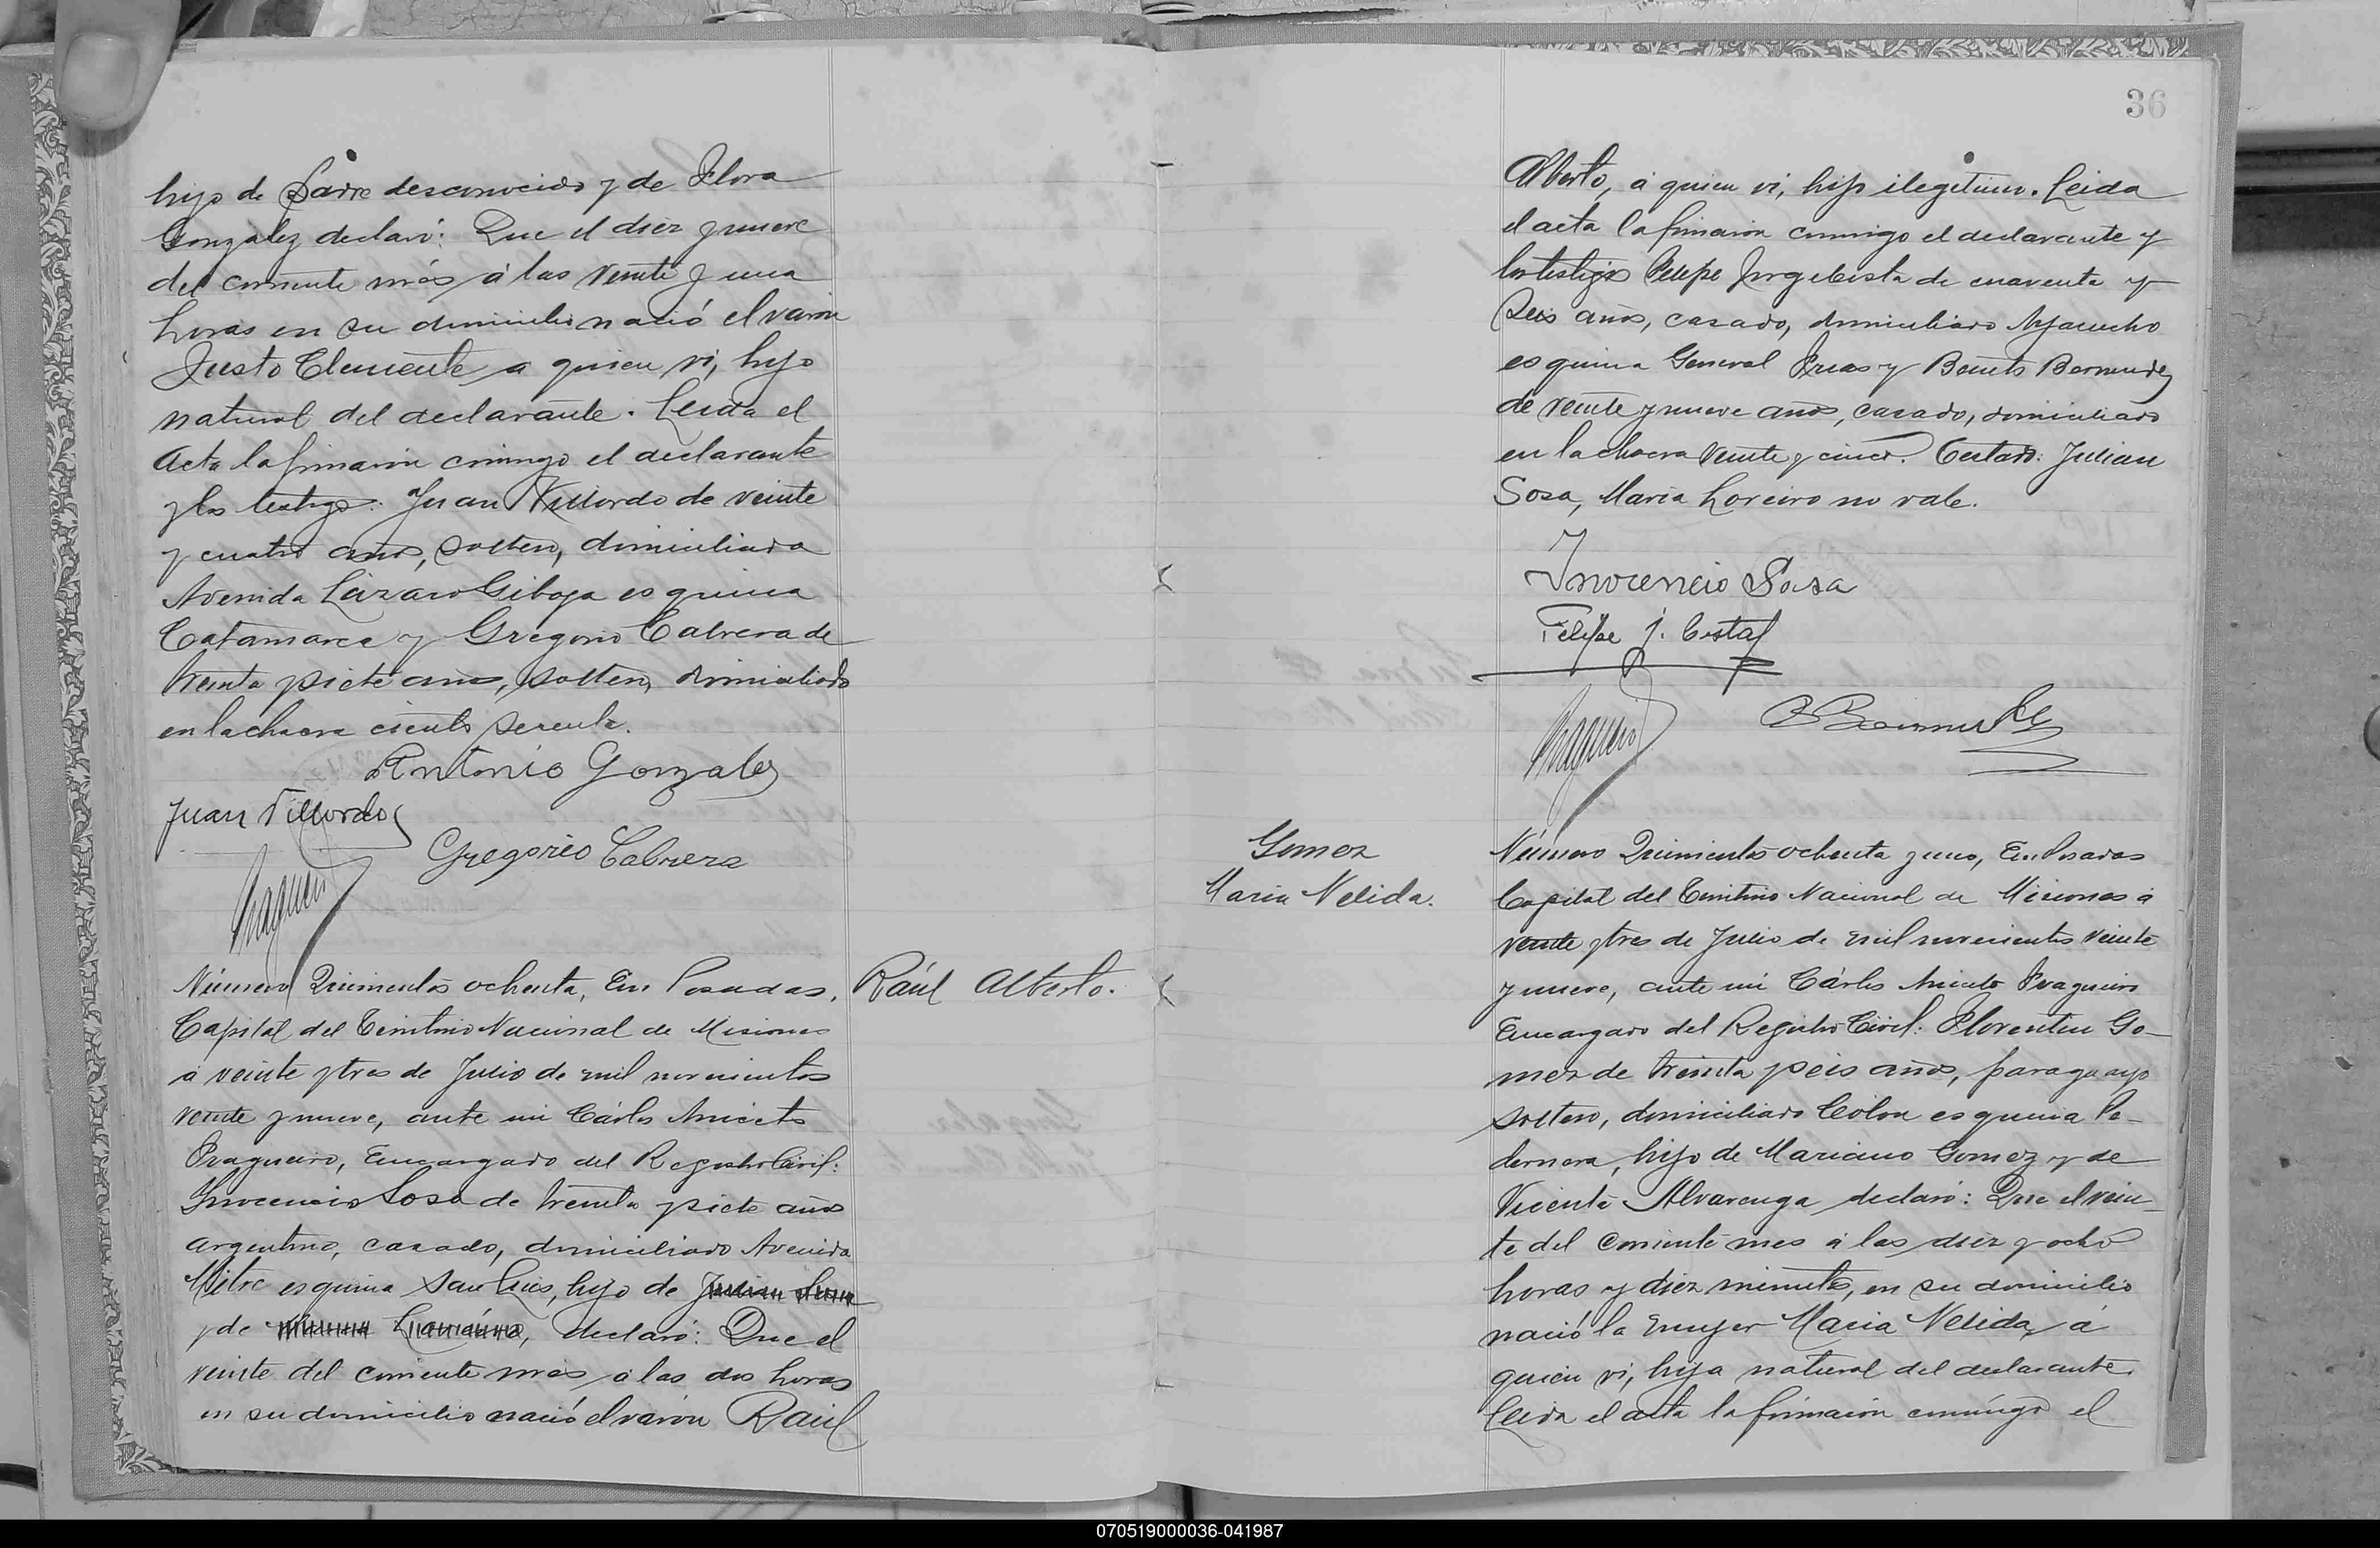 hijo de Padre desconocido y de Flora
Gonzalez declaró: Que el diez y nueve
del corriente mes á las veinte y una
horas en su domicilio nació el varon
Justo Clemente a quien vi, hijo
natural del declarante. Leida el
Acta la firmaron conmigo el declarante
y los testigos: Juan Villordo de veinte
y cuatro años, soltero, domiciliado
Avenida Lázaro Giboja esquina
Catamarca y Gregorio Cabrera de
treinta y siete años, soltero, domiciliado
en la chacra ciento setenta.
Antonio Gonzalez
Juan Villordo
Gregorio Cabrera
Número Quinientos ochenta, En Posadas,
Capital del Territorio Nacional de Misiones
á veinte y tres de Julio de mil novecientos
veinte y nueve, ante mi Cárlos Aniceto
Fragueiro, Encargado del Registro Civil:
Inocencio Sosa de treinta y siete años
argentino, casado, domiciliado Avenida
Mitre esquina San Luis, hijo de Julian
y de declaró: Que el
veinte del corriente mes á las dos horas
en su domicilio nació el varón Raúl
Raúl Alberto.
36
Alberto, á quien vi, hijo ilegitimo. Leida
el acta la firmaron conmigo el declarante y
los testigos Felipe Jorge Costa de cuarenta y
seis años, casado, domiciliado Ayacucho
esquina General Frias y Benito Bermudez
de veinte y nueve años, casado, domiciliado
en la chacra veinte y cinco. Testado: Julian
Sosa, Maria Loreiro no vale.
Inocencio Sosa
Felipe J. Costa
B Bermudez
Gomez
Maria Nelida.
Número Quinientos ochenta y uno, En Posadas
Capital del Territorio Nacional de Misiones á
veinte y tres de Julio de mil novecientos veinte
y nueve, ante mi Cárlos Aniceto Fragueiro
Encargado del Registro Civil: Florentin Go-
mez de treinta y seis años, paraguayo
soltero, domiciliado Colon esquina Pe-
dernera, hijo de Mariano Gomez y de
Vicenta Alvarenga declaró: Que el vein-
te del corriente mes á las diez y ocho
horas y diez minutos, en su domicilio
nació la mujer Maria Nelida, á
quien vi, hija natural del declarante.
Leida el acta la firmaron conmigo el
070519000036-041987